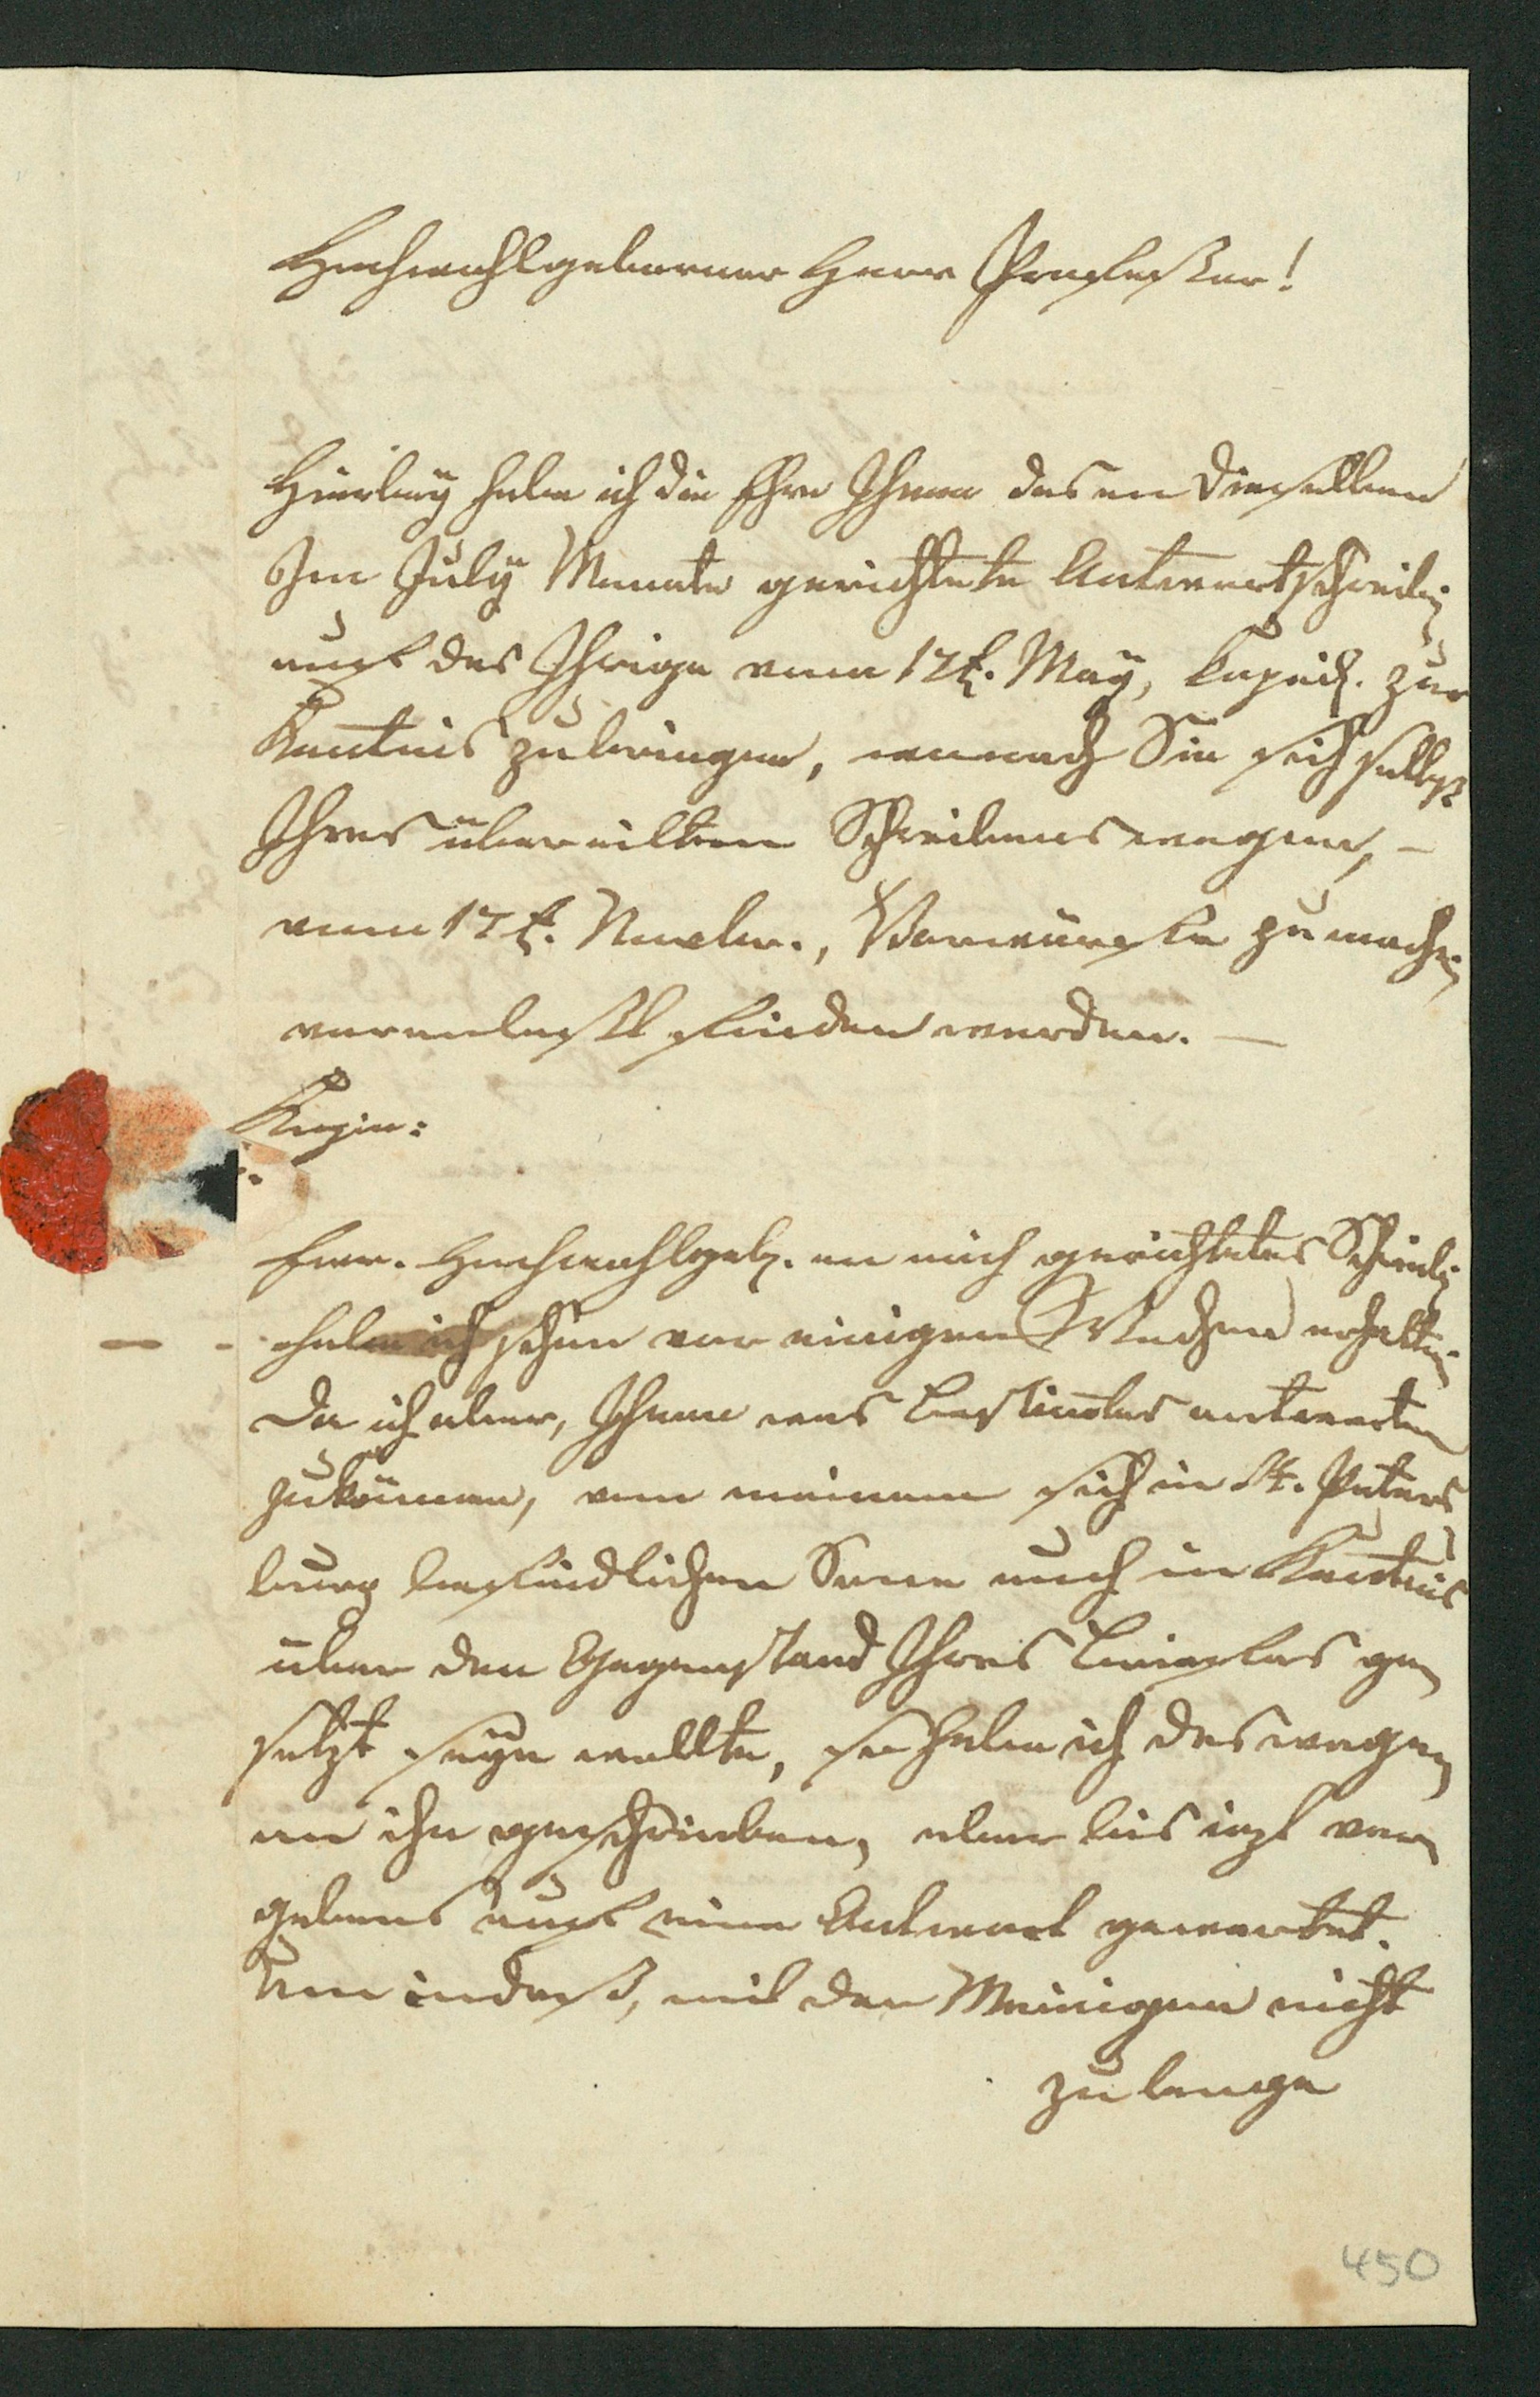 Hochwohlgeborner Herr Professor!
Hierbey habe ich die Ehre Ihnen das an Dieselben
Im July Monate gerichtete Antwortschreiben
auf das Ihrige vom 12t. May, zur
Kentnis zubringen, wonach Sie sich selbst
Ihres übereilten Schreibens wegen, –
vom 17t. Novbr., Vorwürfe zu machen
veranlaßt finden werden. —
Kopie:
Ewr. Hochwohlgeb. an mich gerichtetes Schreiben
habe ich schon vor einigen Wochen erhalten.
Da ich aber, Ihnen was Bestimtes antworten
zukönnen, von meinem sich in St. Peters
burg befindlichen Sone auch in Kentnis
über den Gegenstand Ihres Briefes ge
setzt seyn wollte, so habe ich deswegen
an ihn geschrieben, aber bis izt ver
gebens auf eine Antwort gewartet.
Um indeß, mit der Meinigen nicht
zu lange
450